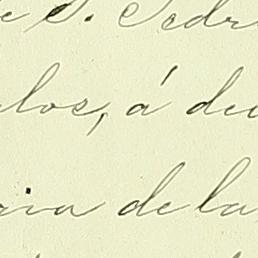 e S. Pedr
los, á du
ria de la